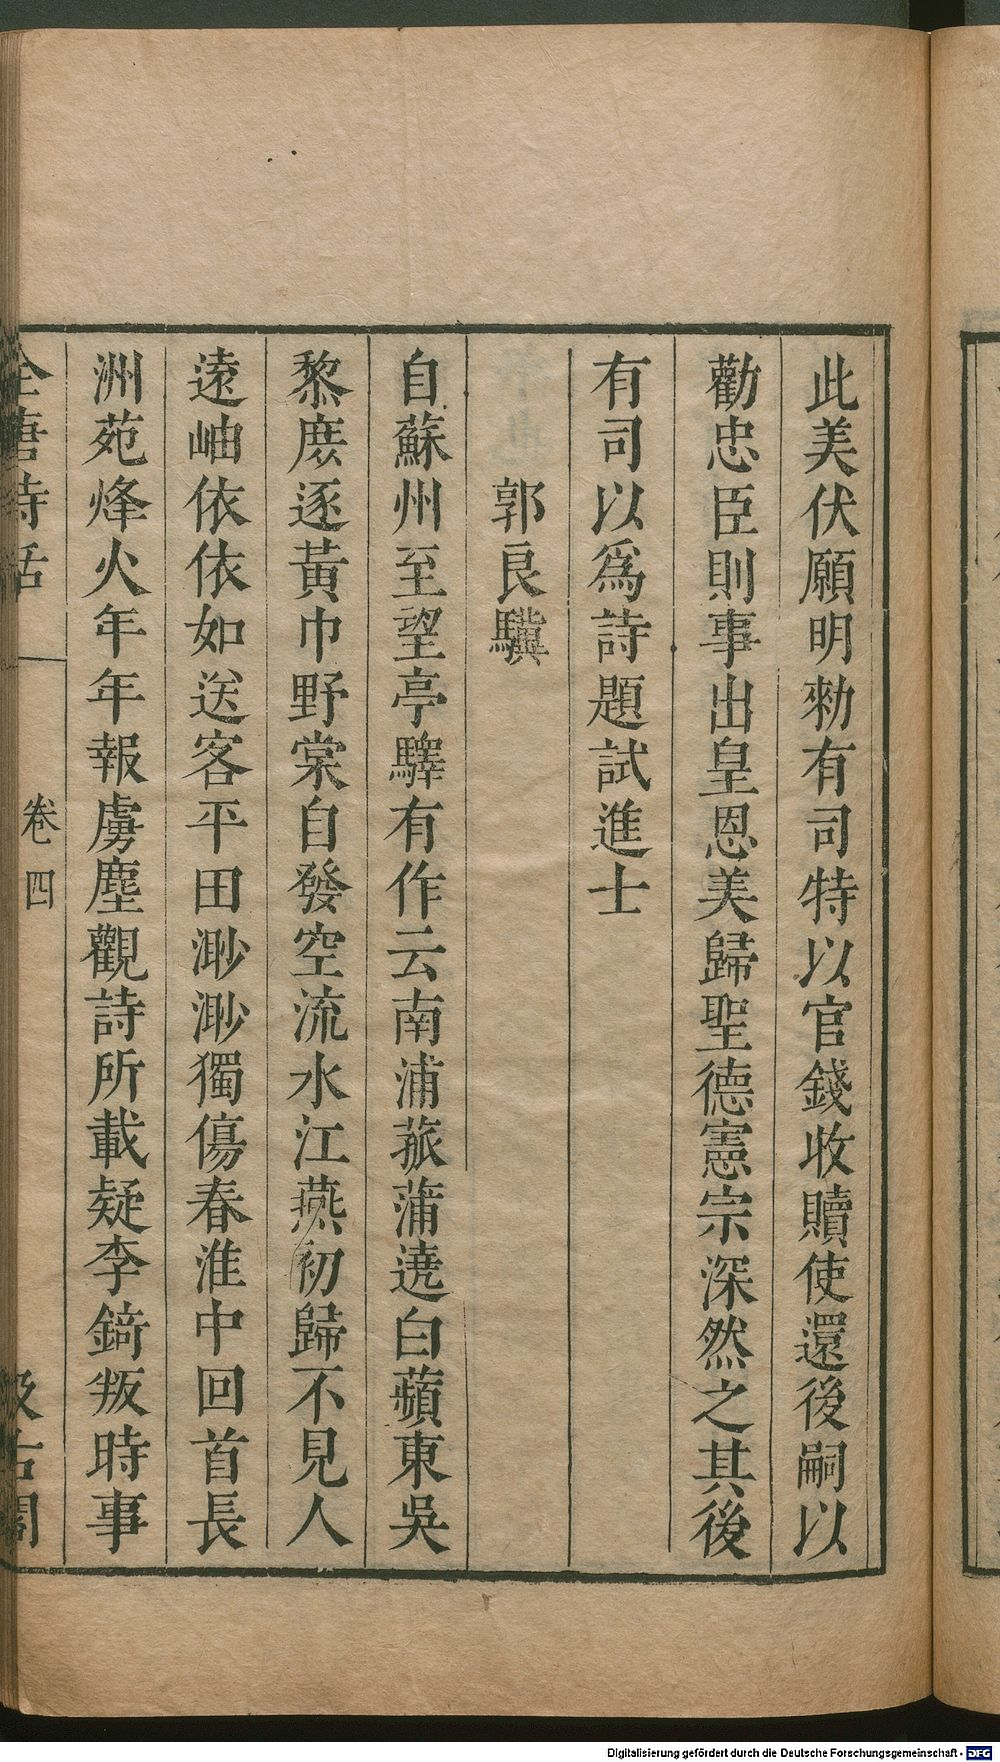 此美伏願明勑有司特以官錢收贖使還後嗣以
勸忠臣則事出皇恩美歸聖德憲宗深然之其後
有司以爲詩題試進士
郭良驥
自蘇州至望亭驛有作云南浦菰蒲遶白蘋東吳
黎庶逐黃巾野棠自發空流水江燕初歸不見人
遠岫依依如送客平田渺渺獨傷春淮中回首長
洲苑烽火年年報虜塵觀詩所載疑李錡叛時事
全唐詩話
卷四
汲古閣
Digitalisierung gefördert durch die Deutsche Forschungsgemeinschaft - DFG